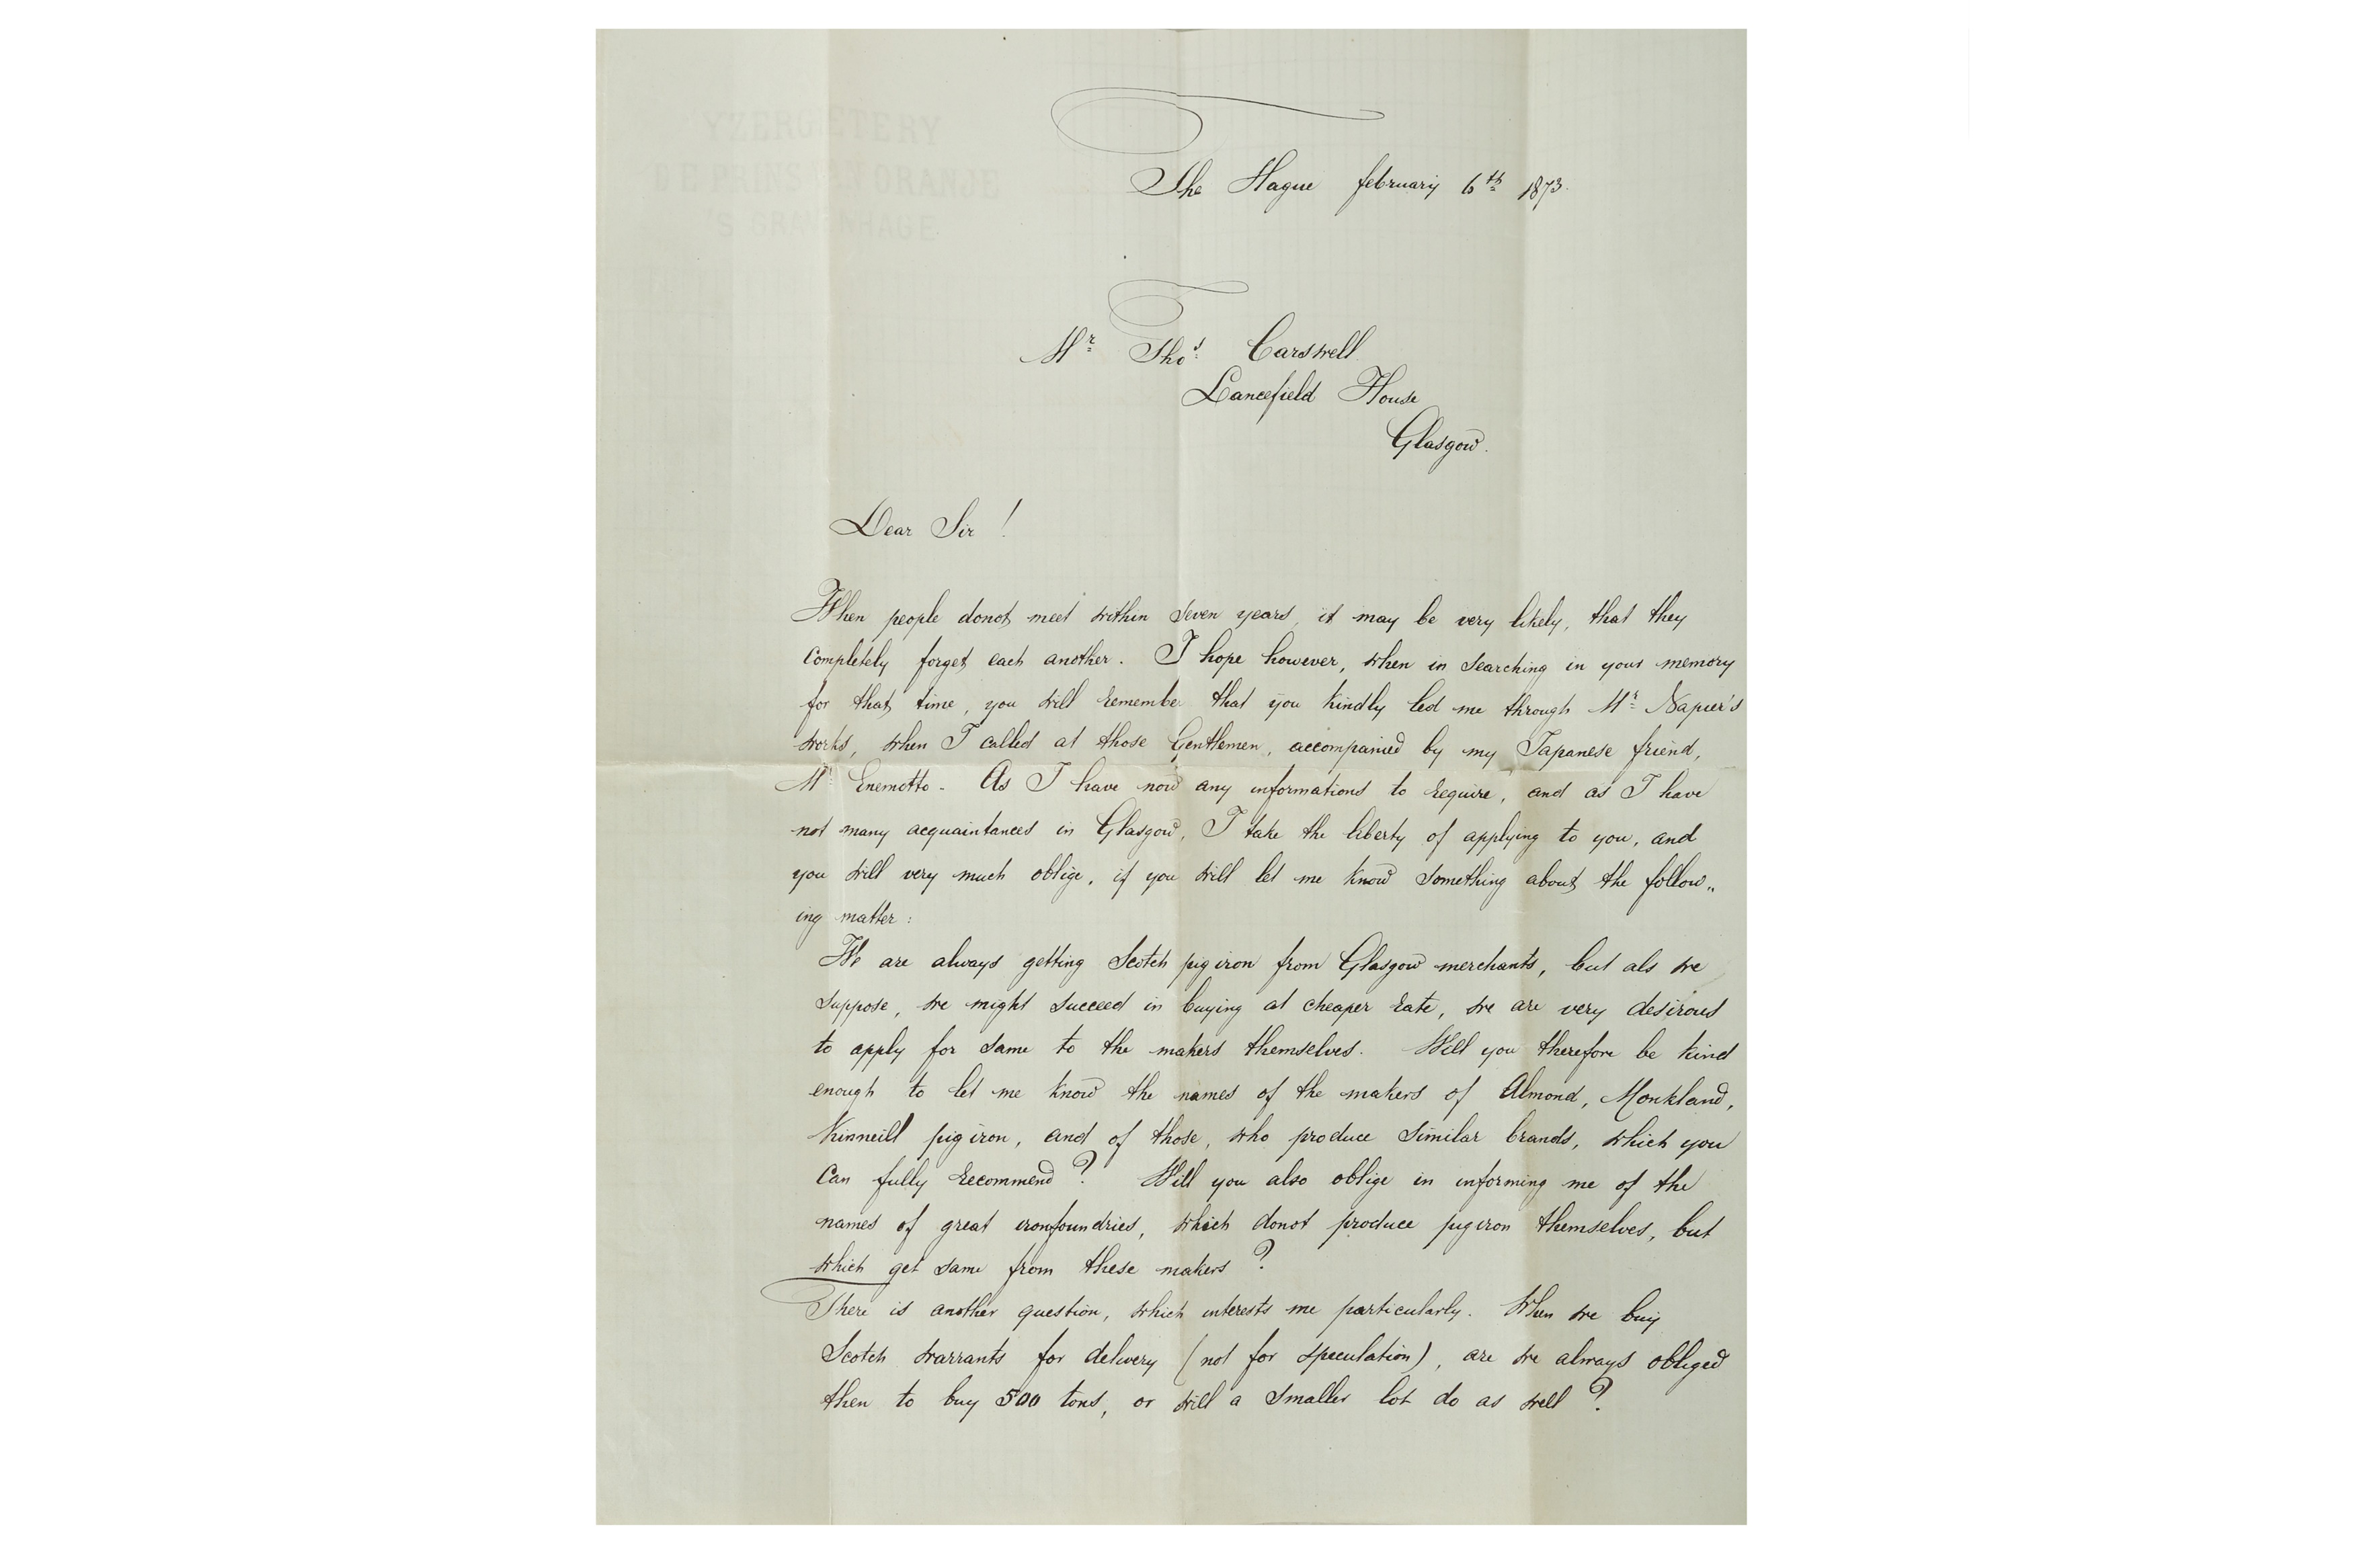 YZERGIETERY
DE PRINS VAN ORANJE
'S GRAVENHAGE
The Hague february 6th 1873.
Mr Thos. Carswell
Lancefield House
Glasgow.
Dear Sir!
When people donot meet within seven years, it may be very likely, that they
completely forget each another. I hope however, when in searching in your memory
for that time, you will remember that you kindly led me through Mr Napier's
works, when I called at those Gentlemen, accompanied by my Japanese friend,
Mr Enemotto - As I have now any informations to require, and as I have
not many acquaintances in Glasgow, I take the liberty of applying to you, and
you will very much oblige, if you will let me know something about the follow„
ing matter:
We are always getting Scotch pig iron from Glasgow merchants, but als we
suppose, we might succeed in buying at cheaper rate, we are very desirous
to apply for same to the makers themselves. Will you therefore be kind
enough to let me know the names of the makers of Almond, Monkland,
Kinneill pig iron, and of those, who produce similar brands, which you
can fully recommend? Will you also oblige in informing me of the
names of great ironfoundries, which donot produce pig iron themselves, but
which get same from these makers?
There is another question, which interests me particularly. When we buy
Scotch warrants for delivery (not for speculation), are we always obliged
then to buy 500 tons, or will a smaller lot do as well?